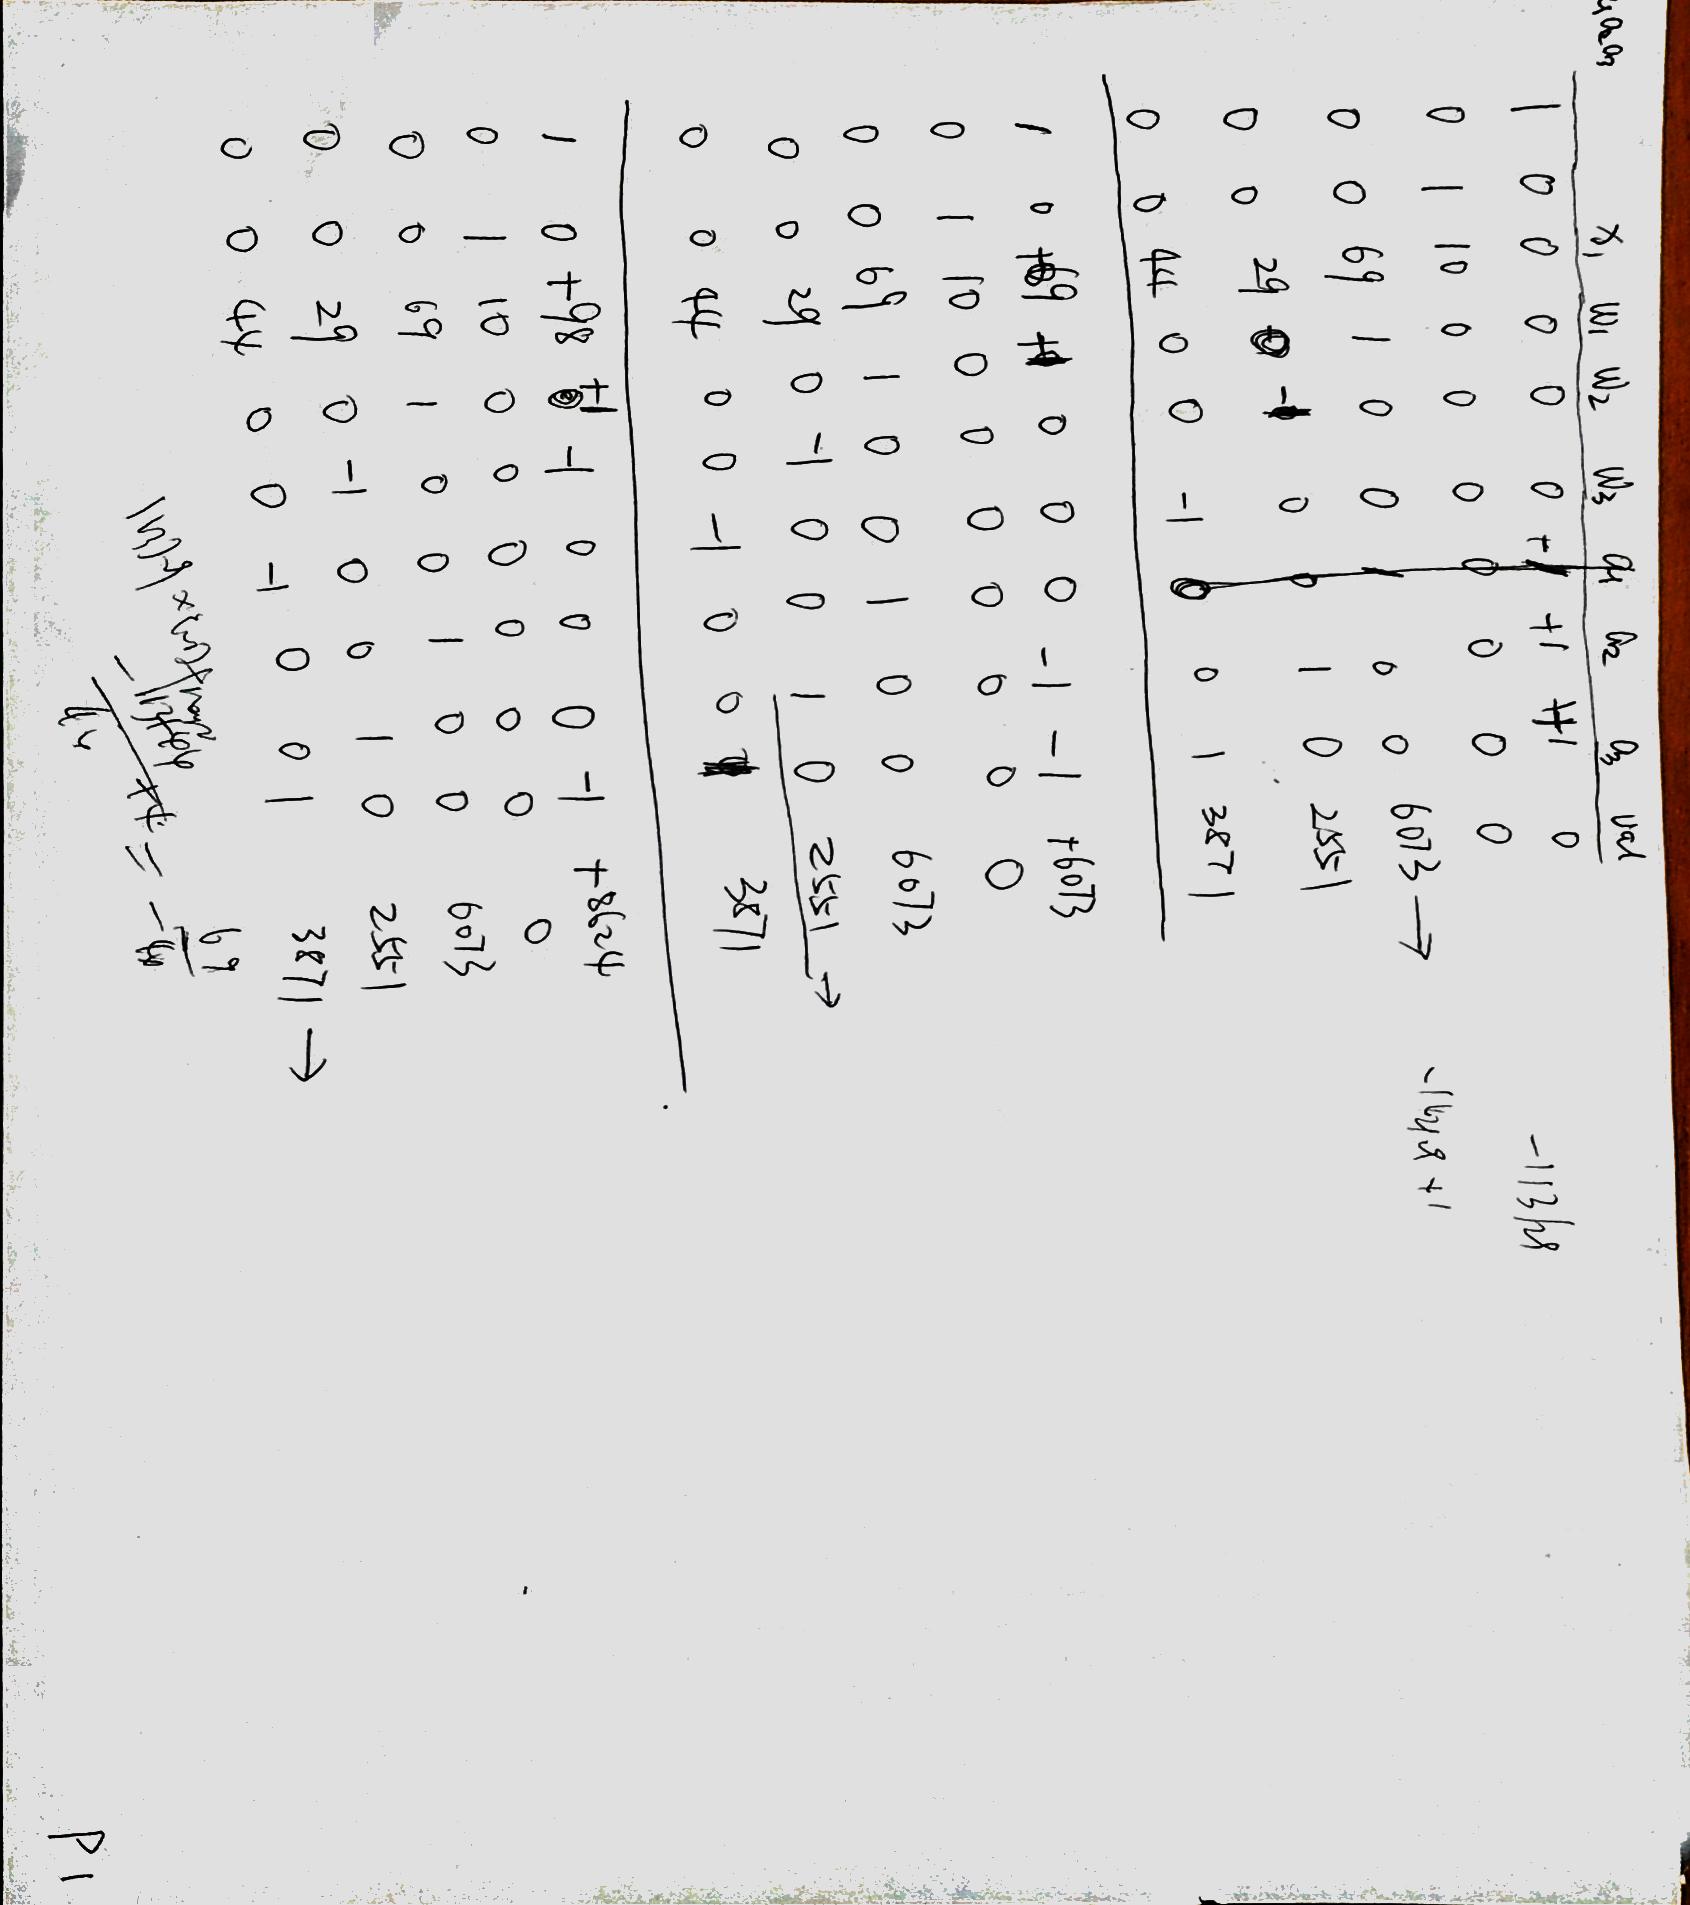 a₂a₃ x₁ w₁ w₂ w₃ a₁ a₂ a₃ val
1 0 0 0 0 0 +1 +1 +1 0
-113/29
0 1 10 0 0 0 0 0 0 0
0 0 69 1 0 0 1 0 0 6073 →
0 0 29 0 -1 0 0 1 0 2551
0 0 44 0 0 -1 0 0 1 3871
1 0 +69 +1 0 0 0 -1 -1 +6073
0 1 10 0 0 0 0 0 0 0
0 0 69 1 0 0 1 0 0 6073
0 0 29 0 -1 0 0 1 0 2551 →
0 0 44 0 0 -1 0 0 1 3871
1 0 +98 +1 -1 0 0 0 -1 +8624
0 1 10 0 0 0 0 0 0 0
0 0 69 1 0 0 1 0 0 6073
0 0 29 0 -1 0 0 1 0 2551
0 0 44 0 0 -1 0 0 1 3871 →
69
P1